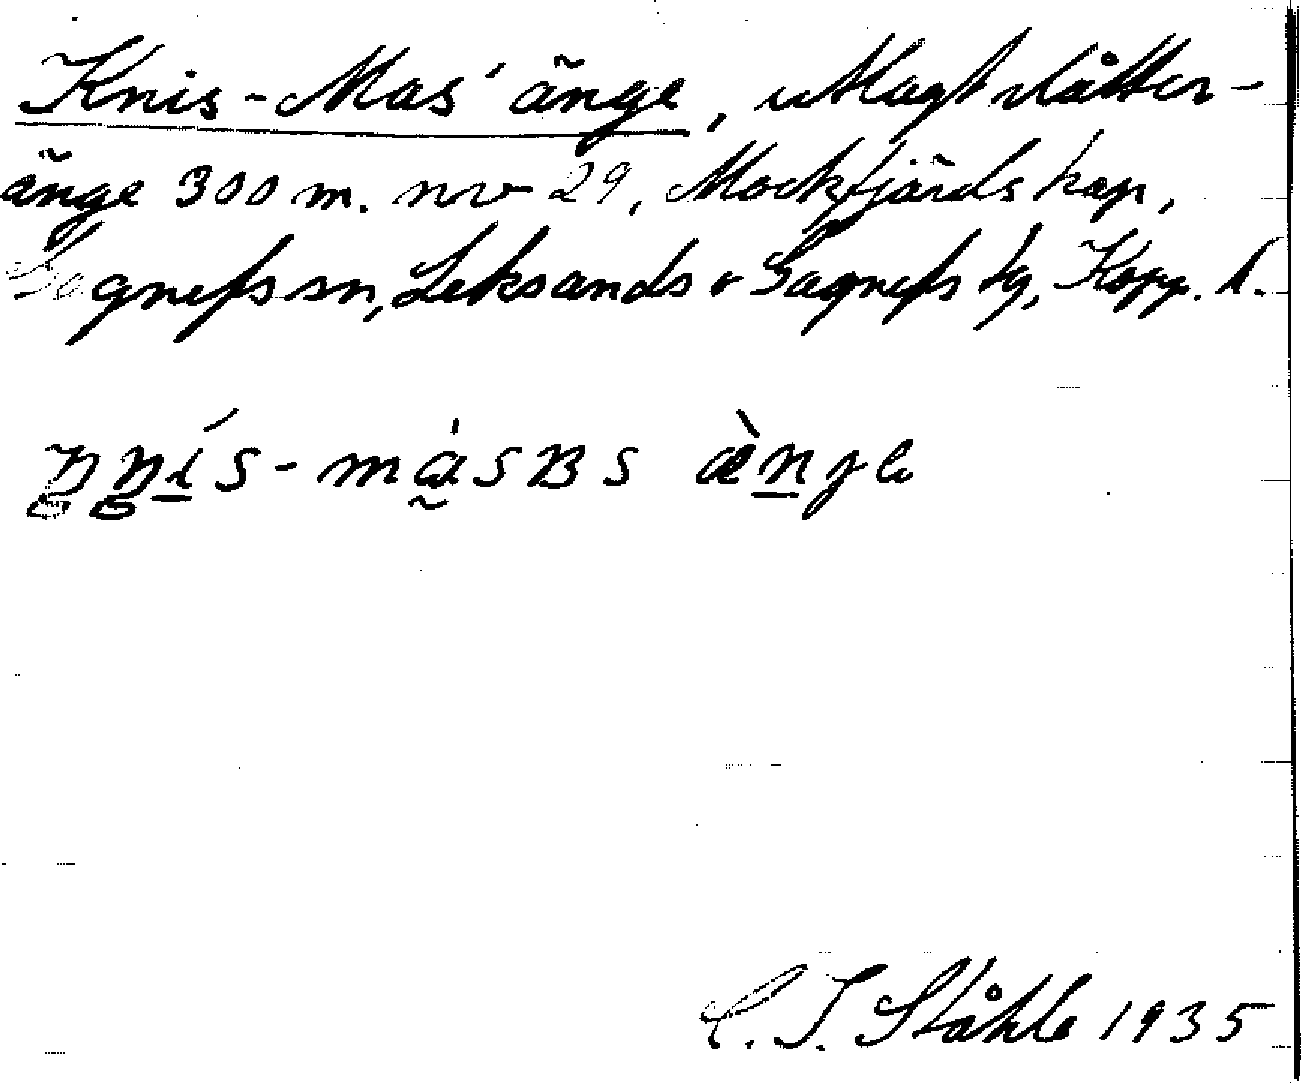 Knis-Mas' änge, utlagt slåtter-
änge 300 m. nv 29, Mockfjärds kap,
Gagnefs sn, Leksands o Gagnefs tg, Kopp. l.
C. I. Ståhle 1935